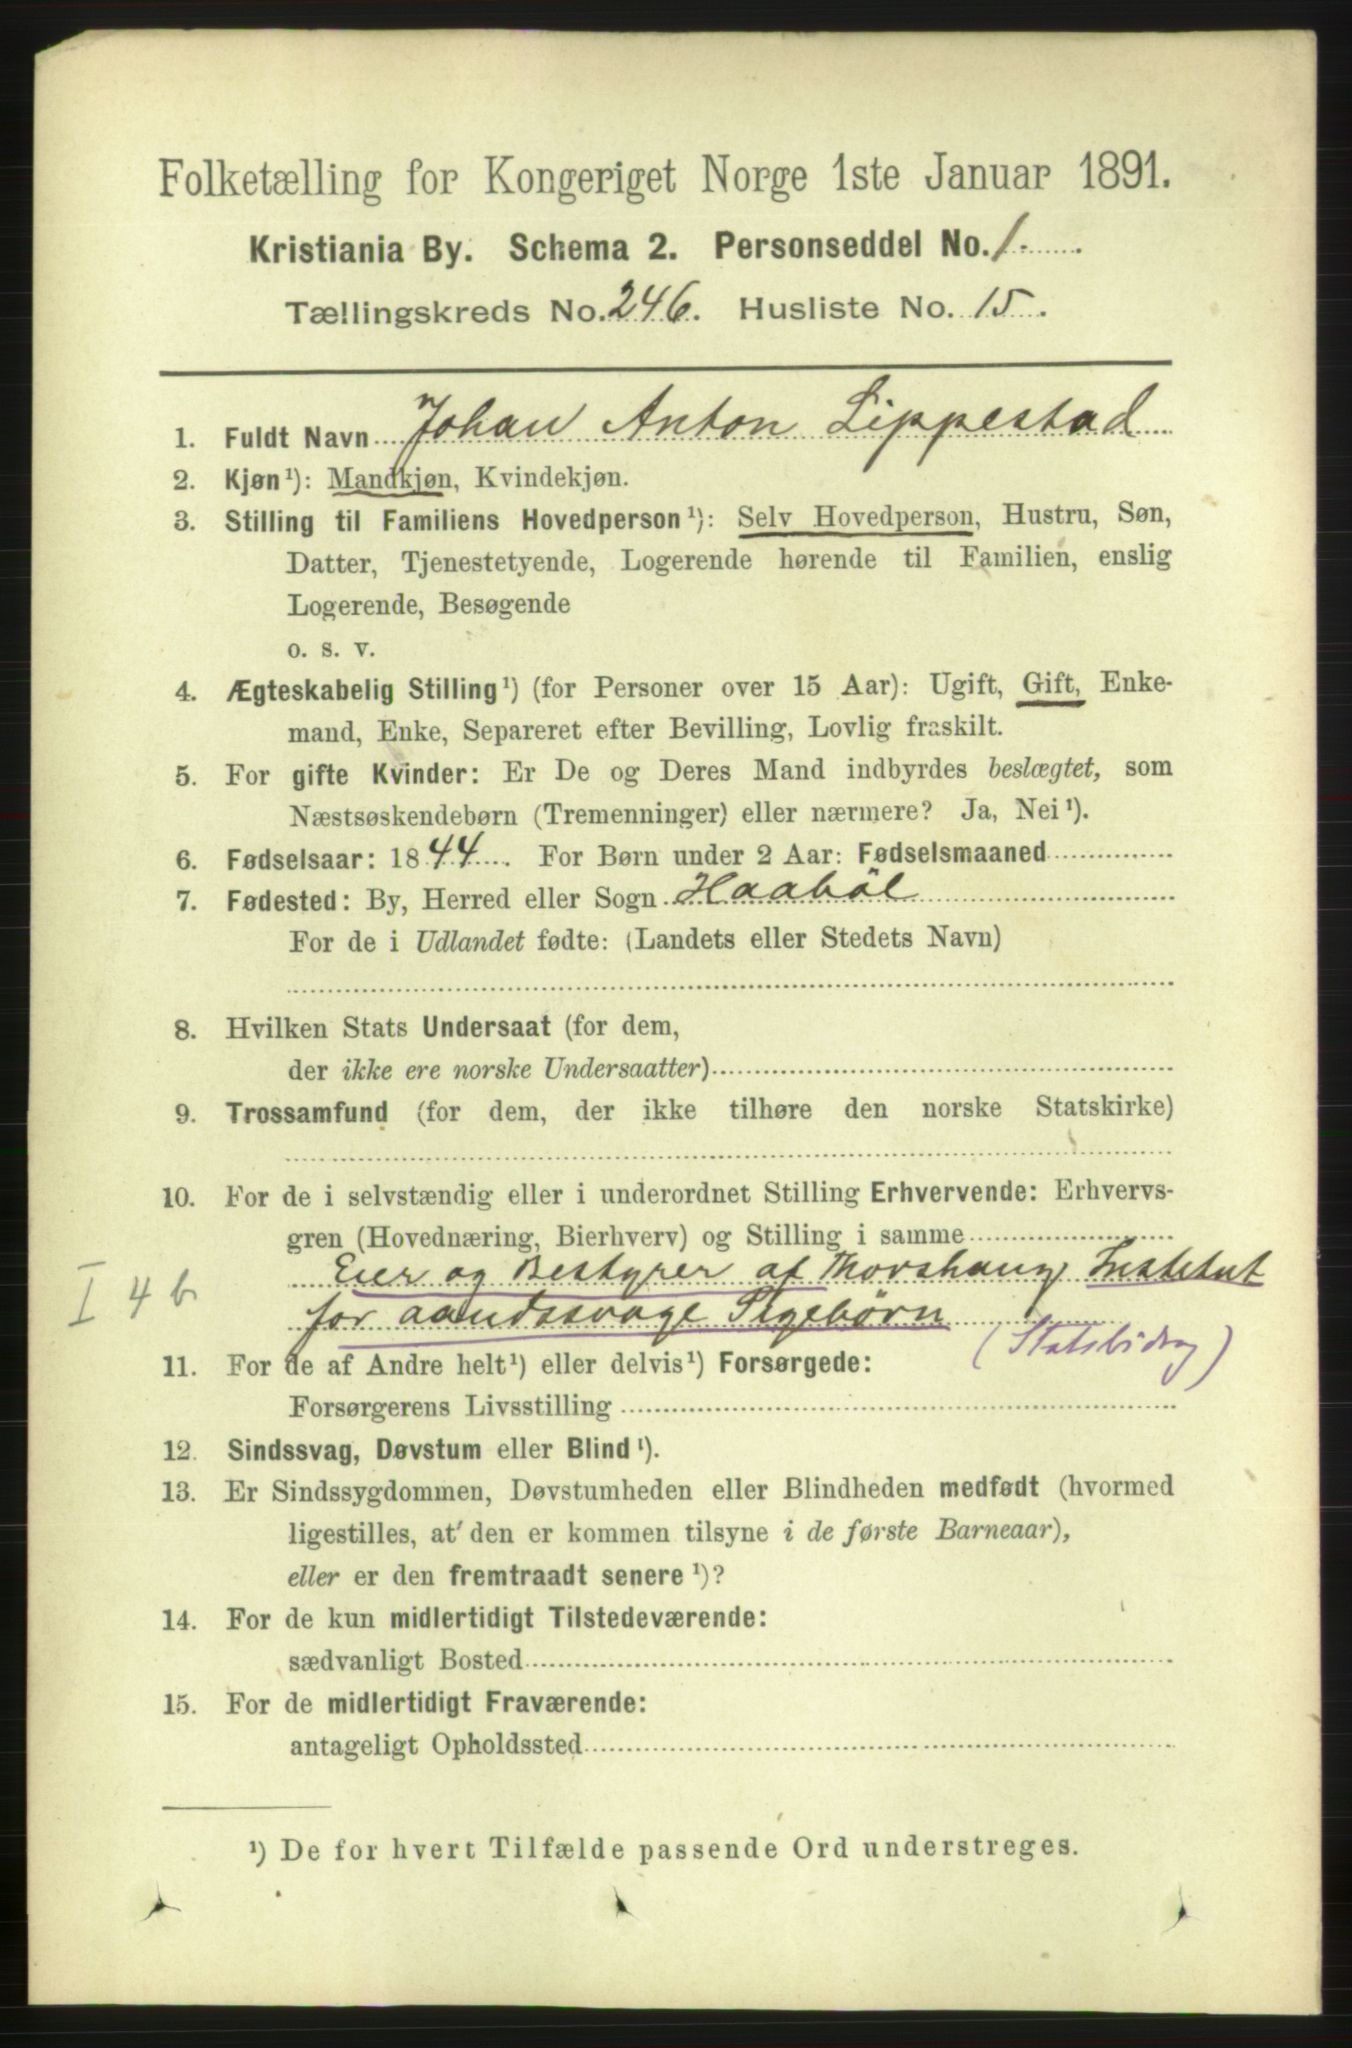 Folketælling for Kongeriget Norge 1ste Januar 1891.
Kristiania By. Schema 2. Personseddel No. 1.
Tællingskreds No. 246. Husliste No. 15.
1. Fuldt Navn Johan Anton Lippestad
2. Kjøn¹): Mandkjøn, Kvindekjøn.
3. Stilling til Familiens Hovedperson¹): Selv Hovedperson, Hustru, Søn,
Datter, Tjenestetyende, Logerende hørende til Familien, enslig
Logerende, Besøgende
o. s. v.
4. Ægteskabelig Stilling¹) (for Personer over 15 Aar): Ugift, Gift, Enke-
mand, Enke, Separeret efter Bevilling, Lovlig fraskilt.
5. For gifte Kvinder: Er De og Deres Mand indbyrdes beslægtet, som
Næstsøskendebørn (Tremenninger) eller nærmere? Ja, Nei¹).
6. Fødselsaar: 1844. For Børn under 2 Aar: Fødselsmaaned
7. Fødested: By, Herred eller Sogn Haaböl
For de i Udlandet fødte: (Landets eller Stedets Navn)
8. Hvilken Stats Undersaat (for dem,
der ikke ere norske Undersaatter)
9. Trossamfund (for dem, der ikke tilhøre den norske Statskirke)
10. For de i selvstændig eller i underordnet Stilling Erhvervende: Erhvervs-
gren (Hovednæring, Bierhverv) og Stilling i samme
Eier og Bestyrer af Thorshaug Institut
I 4 b
for aandssvage Pigebörn
(Statsbidrag)
11. For de af Andre helt¹) eller delvis¹) Forsørgede:
Forsørgerens Livsstilling
12. Sindssvag, Døvstum eller Blind¹).
13. Er Sindssygdommen, Døvstumheden eller Blindheden medfødt (hvormed
ligestilles, at den er kommen tilsyne i de første Barneaar),
eller er den fremtraadt senere¹)?
14. For de kun midlertidigt Tilstedeværende:
sædvanligt Bosted
15. For de midlertidigt Fraværende:
antageligt Opholdssted
¹) De for hvert Tilfælde passende Ord understreges.